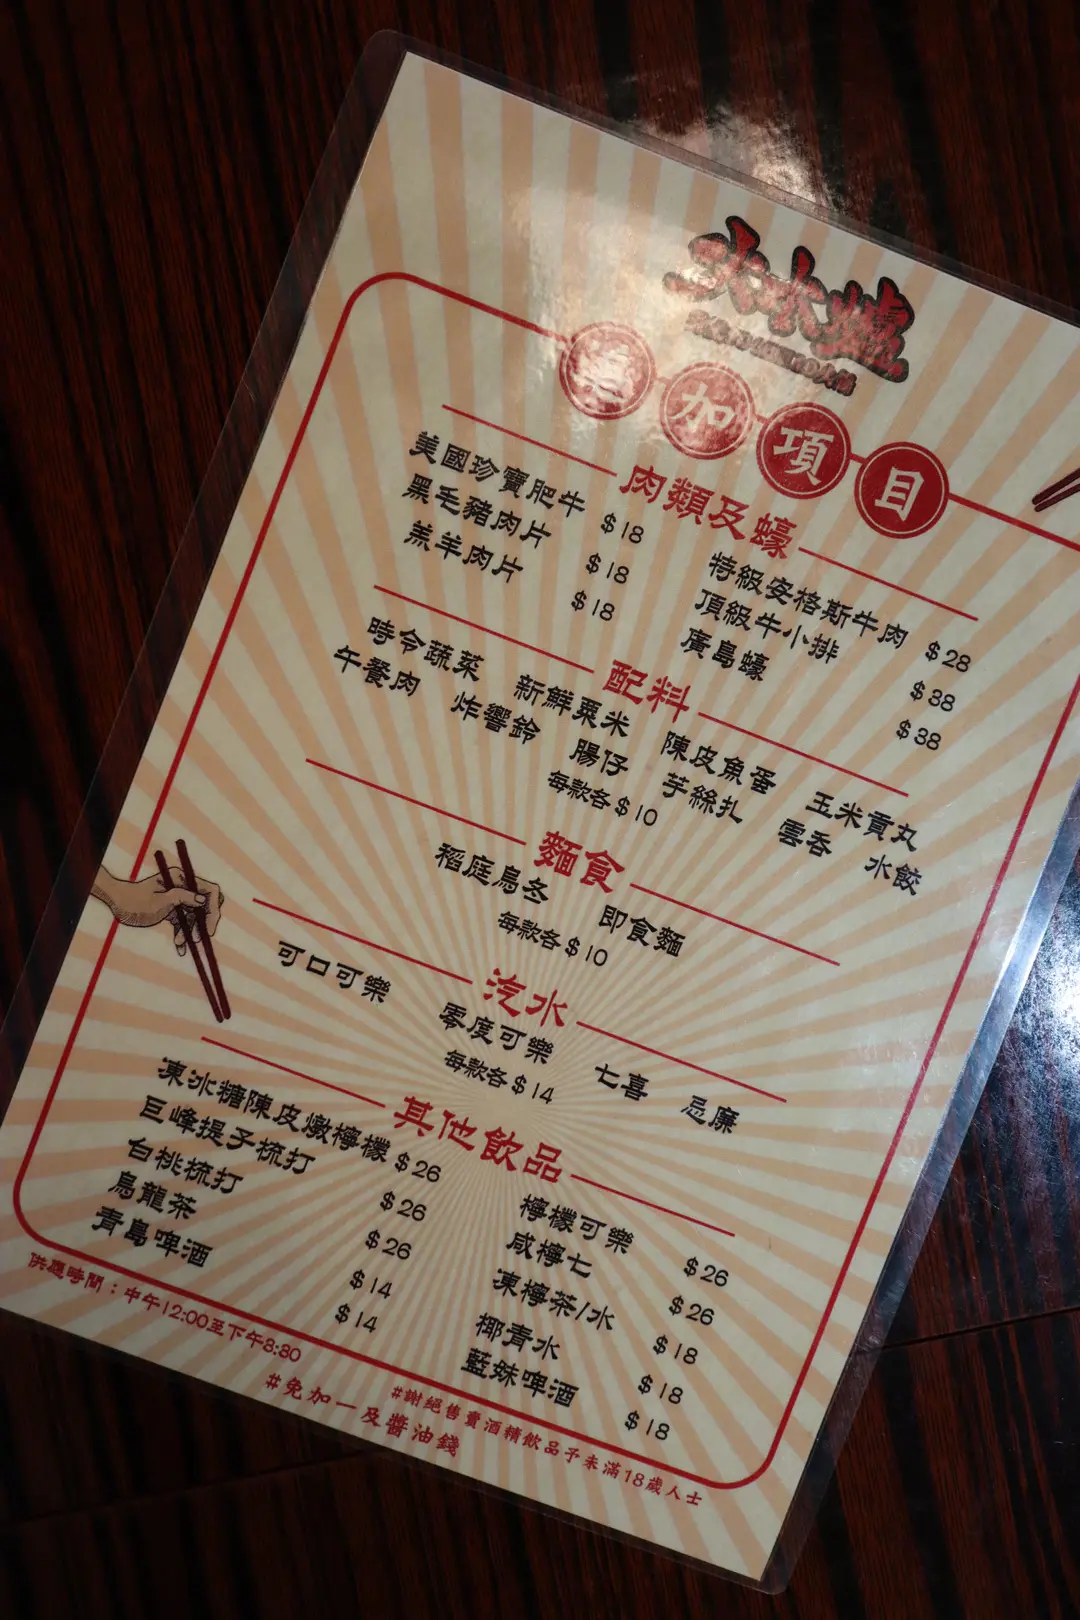 大冰爐
追加項目
肉類及蠔
美國珍寶肥牛 $18
黑毛豬肉片 $18
羔羊肉片 $18
特級安格斯牛肉 $28
頂級牛小排 $38
廣島蠔 $38
配料
時令蔬菜 新鮮粟米 陳皮魚蛋 玉米貢丸
午餐肉 炸響鈴 腸仔 芋絲扎 雲吞 水餃
每款各$10
麵食
稻庭烏冬 即食麵
每款各$10
汽水
可口可樂 零度可樂 七喜 忌廉
每款各$14
其他飲品
凍冰糖陳皮燉檸檬 $26
巨峰提子梳打 $26
白桃梳打 $26
烏龍茶 $14
青島啤酒 $14
檸檬可樂 $26
咸檸七 $26
凍檸茶/水 $18
椰青水 $18
藍妹啤酒 $18
供應時間：中午12:00至下午8:30
#謝絕售賣酒精飲品予未滿18歲人士
#免加一及醬油錢